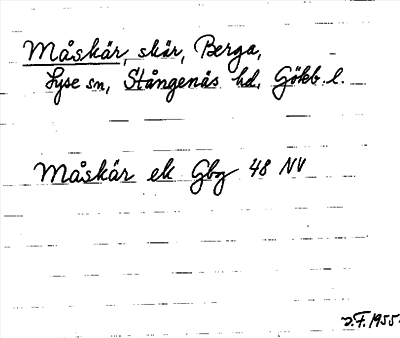 Måskär, skär, Berga,
Lyse sn, Stångenäs hd, Gökb. l.
Måskär ek Gbg 48 NV
F. 1955.